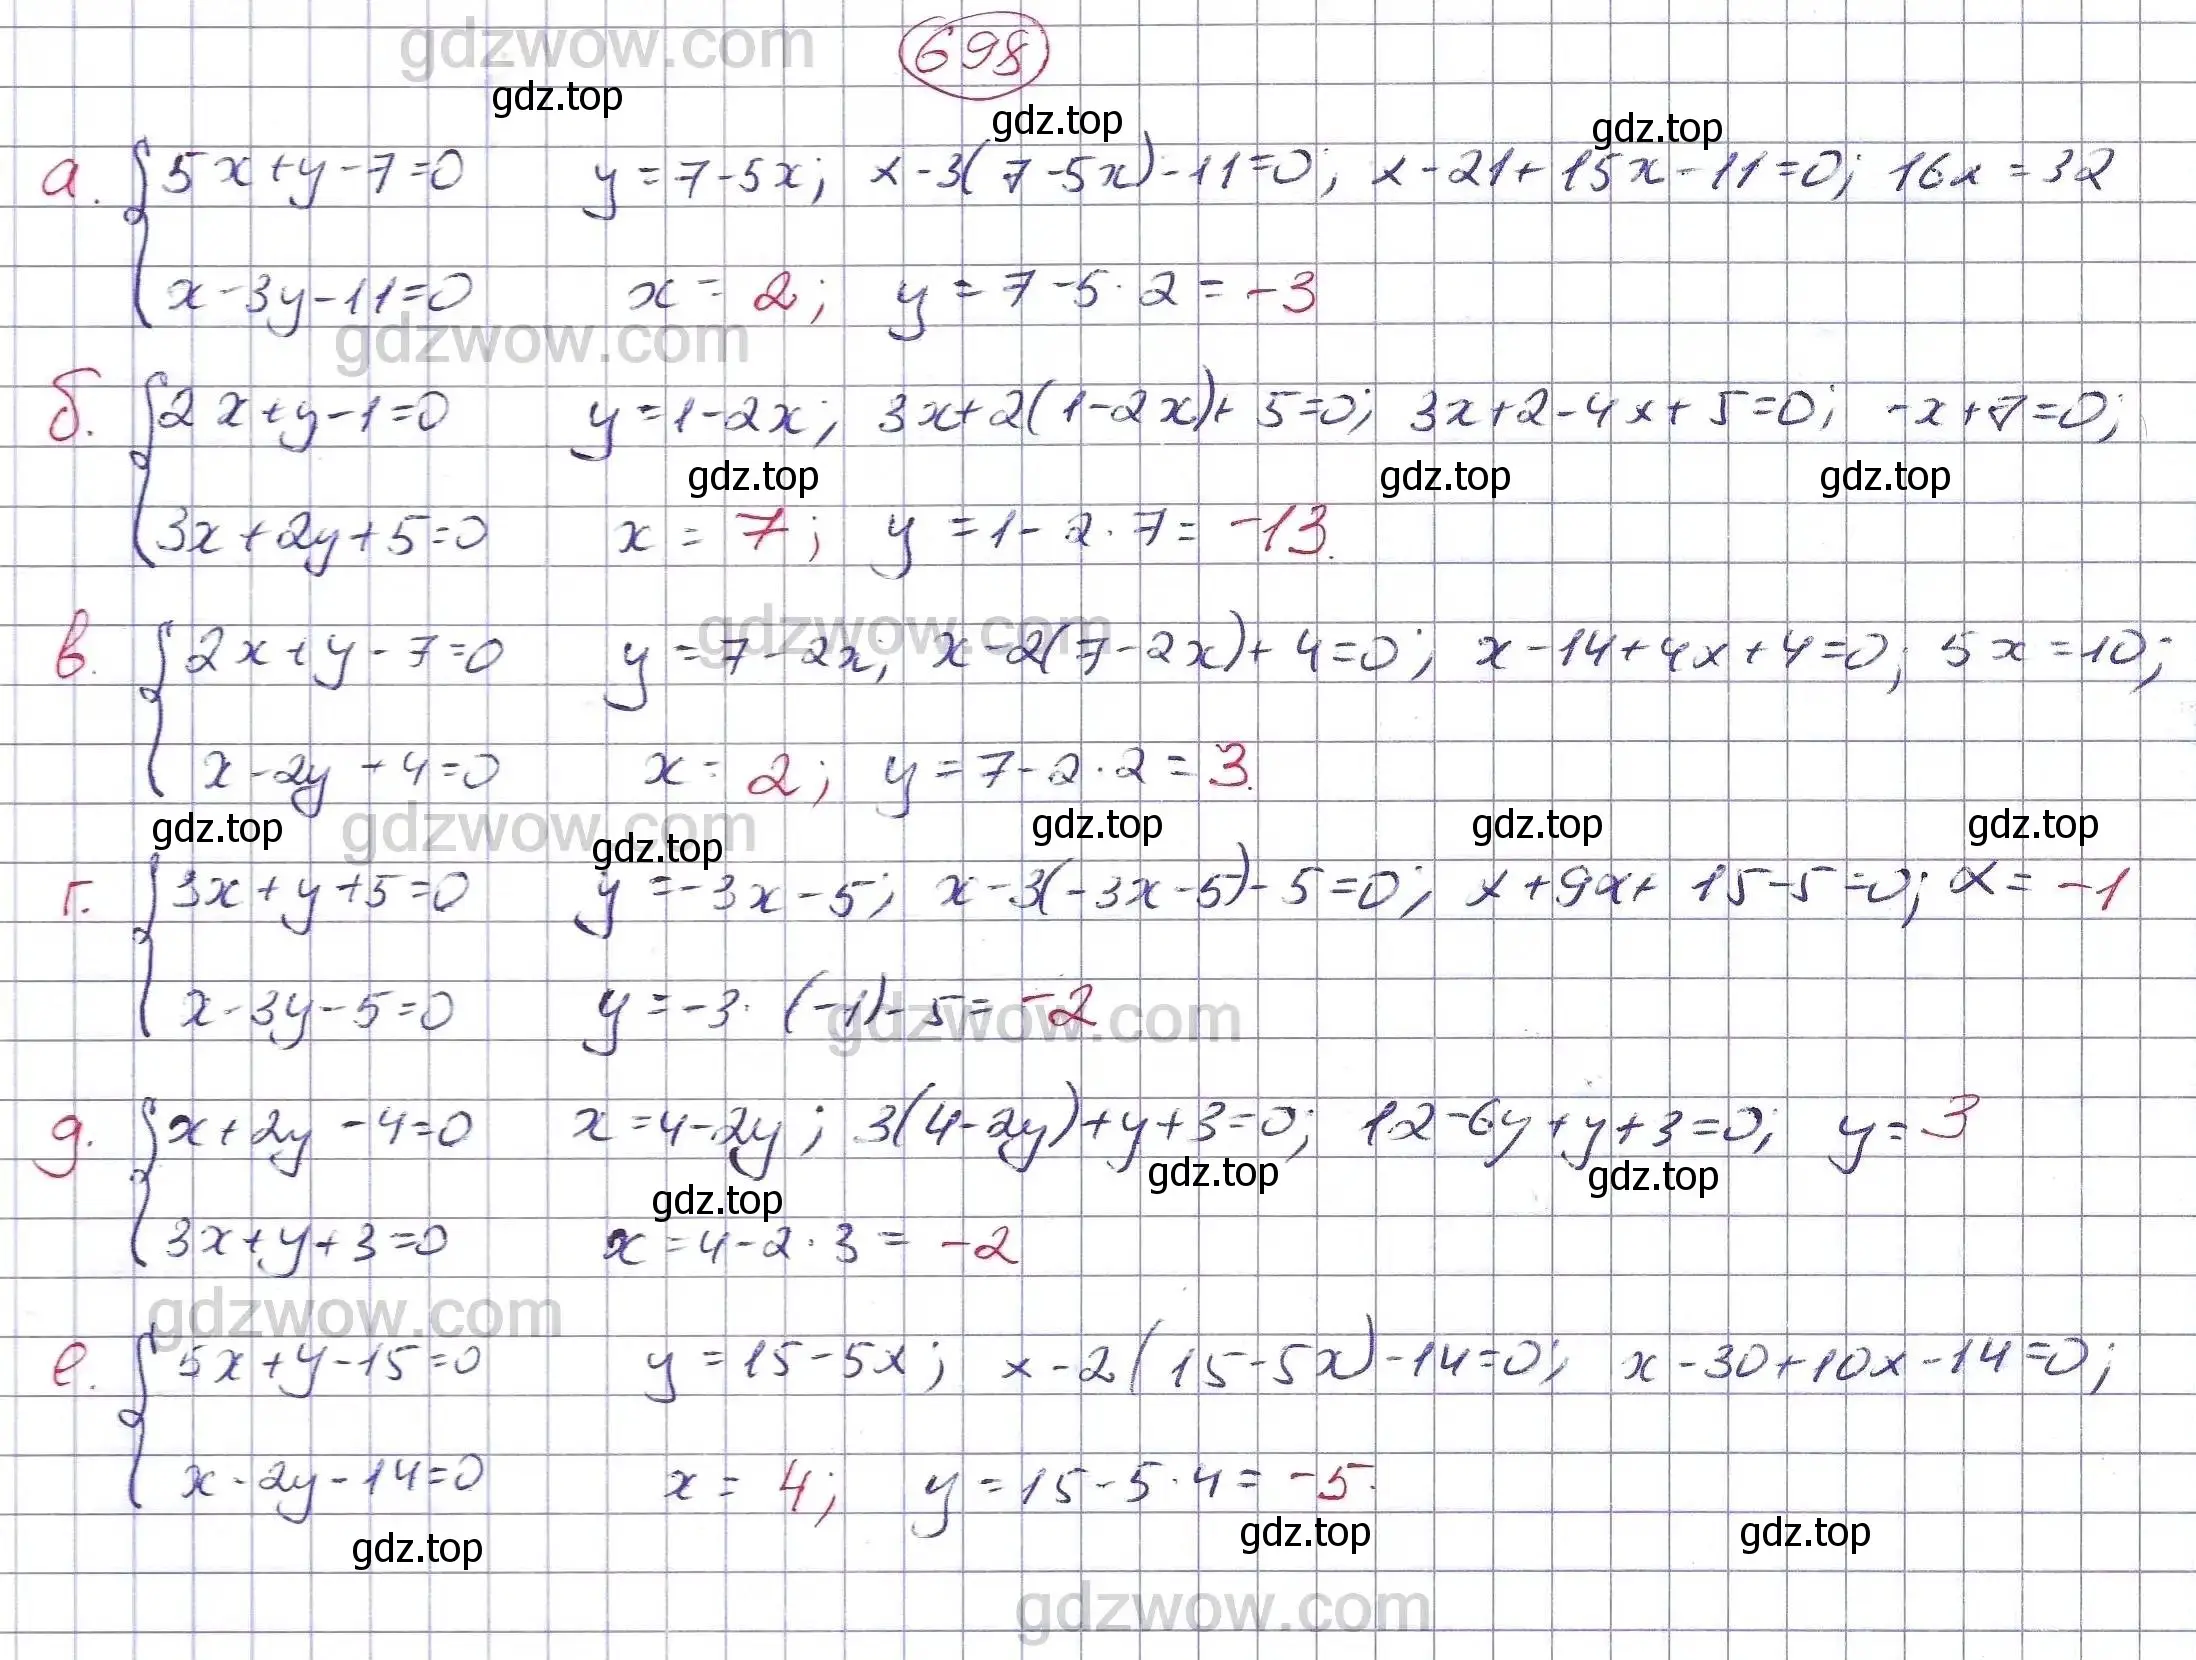 gdzwow.com
698
gdz.top
gdz.top gdz.top
а. {5x+y-7=0 y=7-5x; x-3(7-5x)-11=0; x-21+15x-11=0; 16x=32
x-3y-11=0 x=2; y=7-5·2=-3
gdzwow.com
б. {2x+y-1=0 y=1-2x; 3x+2(1-2x)+5=0; 3x+2-4x+5=0; -x+7=0;
gdz.top gdz.top gdz.top
3x+2y+5=0 x=7; y=1-2·7=-13.
gdzwow.com
в. {2x+y-7=0 y=7-2x; x-2(7-2x)+4=0; x-14+4x+4=0; 5x=10;
x-2y+4=0 x=2; y=7-2·2=3.
gdz.top gdzwow.com gdz.top gdz.top gdz.top gdz.top
г. {3x+y+5=0 y=-3x-5; x-3(-3x-5)-5=0; x+9x+15-5=0; x=-1
x-3y-5=0 y=-3·(-1)-5=-2
gdzwow.com
д. {x+2y-4=0 x=4-2y; 3(4-2y)+y+3=0; 12-6y+y+3=0; y=3
gdz.top gdz.top gdz.top
3x+y+3=0 x=4-2·3=-2
gdzwow.com
е. {5x+y-15=0 y=15-5x; x-2(15-5x)-14=0; x-30+10x-14=0;
x-2y-14=0 x=4; y=15-5·4=-5.
gdz.top gdz.top gdz.top
gdzwow.com